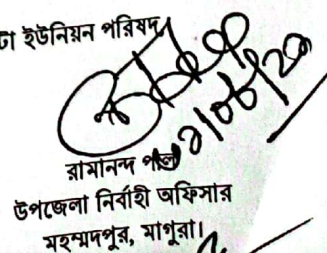 টা ইউনিয়ন পরিষদ
রামানন্দ পাল
উপজেলা নির্বাহী অফিসার
মহম্মদপুর, মাগুরা।